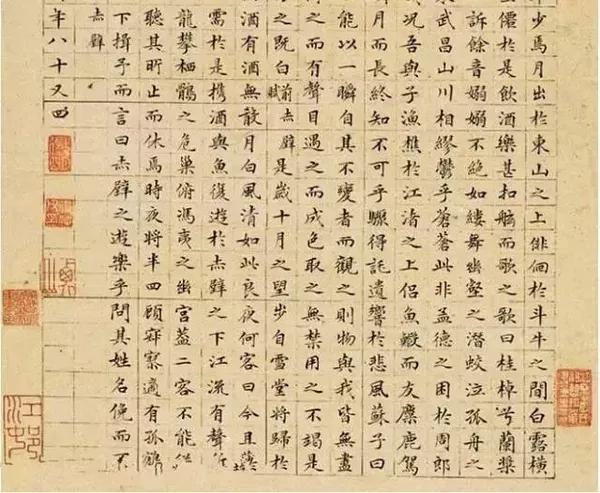 少焉月出於東山之上徘徊於斗牛之間白露橫
僊於是飲酒樂甚扣舷而歌之歌曰桂棹兮蘭槳
訴餘音嫋嫋不絕如縷舞幽壑之潛蛟泣孤舟之
武昌山川相繆鬱乎蒼蒼此非孟德之困於周郎
況吾與子漁樵於江渚之上侶魚蝦而友麋鹿駕
月而長終知不可乎驟得託遺響於悲風蘇子曰
能以一瞬自其不變者而觀之則物與我皆無盡
之而有聲目遇之而成色取之無禁用之不竭是
之既白前賦赤壁是歲十月之望步自雪堂將歸於
酒有酒無殽月白風清如此良夜何客曰今且薄
需於是攜酒與魚復遊於赤壁之下江流有聲
龍攀栖鶻之危巢俯馮夷之幽宮蓋二客不能從
聽其所止而休焉時夜將半四顧寂寥適有孤鶴
下揖予而言曰赤壁之遊樂乎問其姓名俛而不
赤壁
年八十又四
江邨